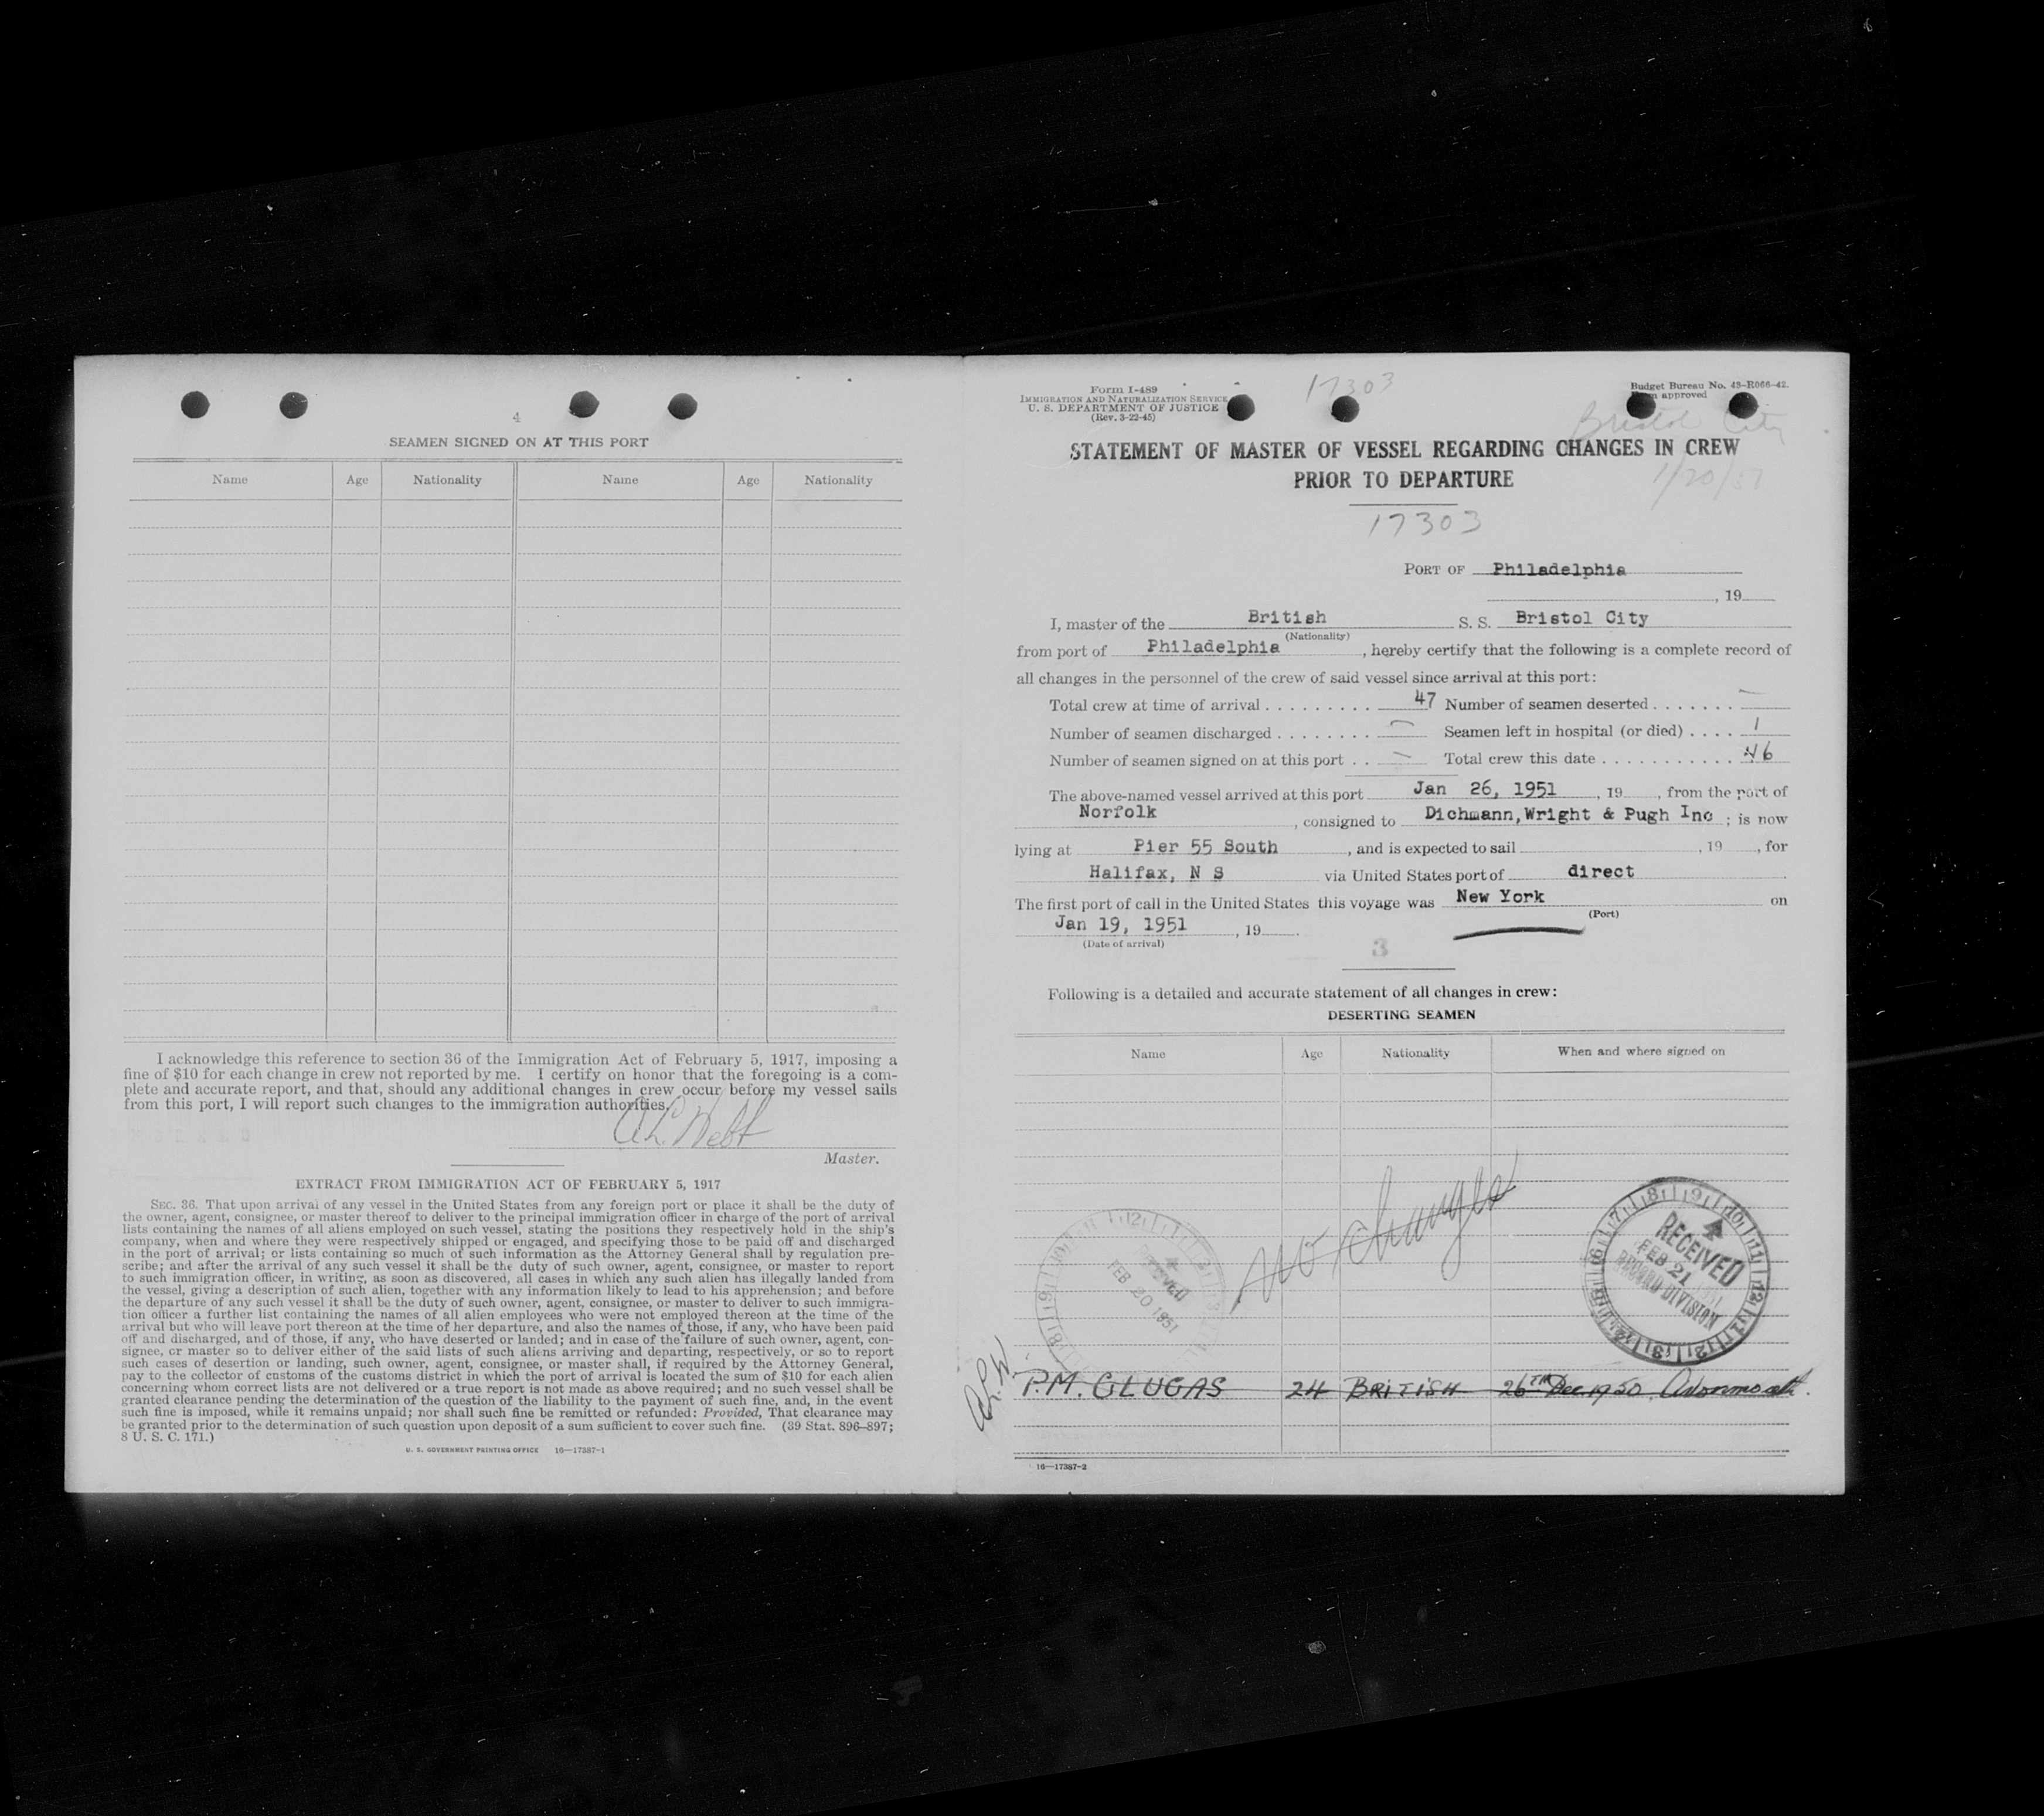 4
SEAMEN SIGNED ON AT THIS PORT
Name Age Nationality Name Age Nationality
I acknowledge this reference to section 36 of the Immigration Act of February 5, 1917, imposing a
fine of $10 for each change in crew not reported by me. I certify on honor that the foregoing is a com-
plete and accurate report, and that, should any additional changes in crew occur before my vessel sails
from this port, I will report such changes to the immigration authorities.
A. L. Webb
Master.
EXTRACT FROM IMMIGRATION ACT OF FEBRUARY 5, 1917
SEC. 36. That upon arrival of any vessel in the United States from any foreign port or place it shall be the duty of
the owner, agent, consignee, or master thereof to deliver to the principal immigration officer in charge of the port of arrival
lists containing the names of all aliens employed on such vessel, stating the positions they respectively hold in the ship's
company, when and where they were respectively shipped or engaged, and specifying those to be paid off and discharged
in the port of arrival; or lists containing so much of such information as the Attorney General shall by regulation pre-
scribe; and after the arrival of any such vessel it shall be the duty of such owner, agent, consignee, or master to report
to such immigration officer, in writing, as soon as discovered, all cases in which any such alien has illegally landed from
the vessel, giving a description of such alien, together with any information likely to lead to his apprehension; and before
the departure of any such vessel it shall be the duty of such owner, agent, consignee, or master to deliver to such immigra-
tion officer a further list containing the names of all alien employees who were not employed thereon at the time of the
arrival but who will leave port thereon at the time of her departure, and also the names of those, if any, who have been paid
off and discharged, and of those, if any, who have deserted or landed; and in case of the failure of such owner, agent, con-
signee, or master so to deliver either of the said lists of such aliens arriving and departing, respectively, or so to report
such cases of desertion or landing, such owner, agent, consignee, or master shall, if required by the Attorney General,
pay to the collector of customs of the customs district in which the port of arrival is located the sum of $10 for each alien
concerning whom correct lists are not delivered or a true report is not made as above required; and no such vessel shall be
granted clearance pending the determination of the question of the liability to the payment of such fine, and, in the event
such fine is imposed, while it remains unpaid; nor shall such fine be remitted or refunded: Provided, That clearance may
be granted prior to the determination of such question upon deposit of a sum sufficient to cover such fine. (39 Stat. 896–897;
8 U. S. C. 171.)
U. S. GOVERNMENT PRINTING OFFICE 16—17387-1
Form I-489
IMMIGRATION AND NATURALIZATION SERVICE
U. S. DEPARTMENT OF JUSTICE
(Rev. 3-22-45)
17303
Budget Bureau No. 43–R066–42.
approved
Bristol City
1/20/51
STATEMENT OF MASTER OF VESSEL REGARDING CHANGES IN CREW
PRIOR TO DEPARTURE
17303
PORT OF Philadelphia
, 19
I, master of the British S. S. Bristol City
(Nationality)
from port of Philadelphia , hereby certify that the following is a complete record of
all changes in the personnel of the crew of said vessel since arrival at this port:
Total crew at time of arrival . . . . . . . . . 47 Number of seamen deserted . . . . . . . —
Number of seamen discharged . . . . . . . . — Seamen left in hospital (or died) . . . . 1
Number of seamen signed on at this port . . — Total crew this date . . . . . . . . . . . 46
The above-named vessel arrived at this port Jan 26, 1951 , 19 , from the port of
Norfolk , consigned to Dichmann, Wright & Pugh Inc ; is now
lying at Pier 55 South , and is expected to sail , 19 , for
Halifax, N S via United States port of direct .
The first port of call in the United States this voyage was New York on
(Port)
Jan 19, 1951 , 19 .
(Date of arrival)
3
Following is a detailed and accurate statement of all changes in crew:
DESERTING SEAMEN
Name Age Nationality When and where signed on
no changes
RECEIVED
FEB 20 1951
RECEIVED
FEB 21
RECORD DIVISION
A.L.W.
P.M. GLUGAS 24 BRITISH 26TH Dec 1950, Avonmouth.
16—17387-2